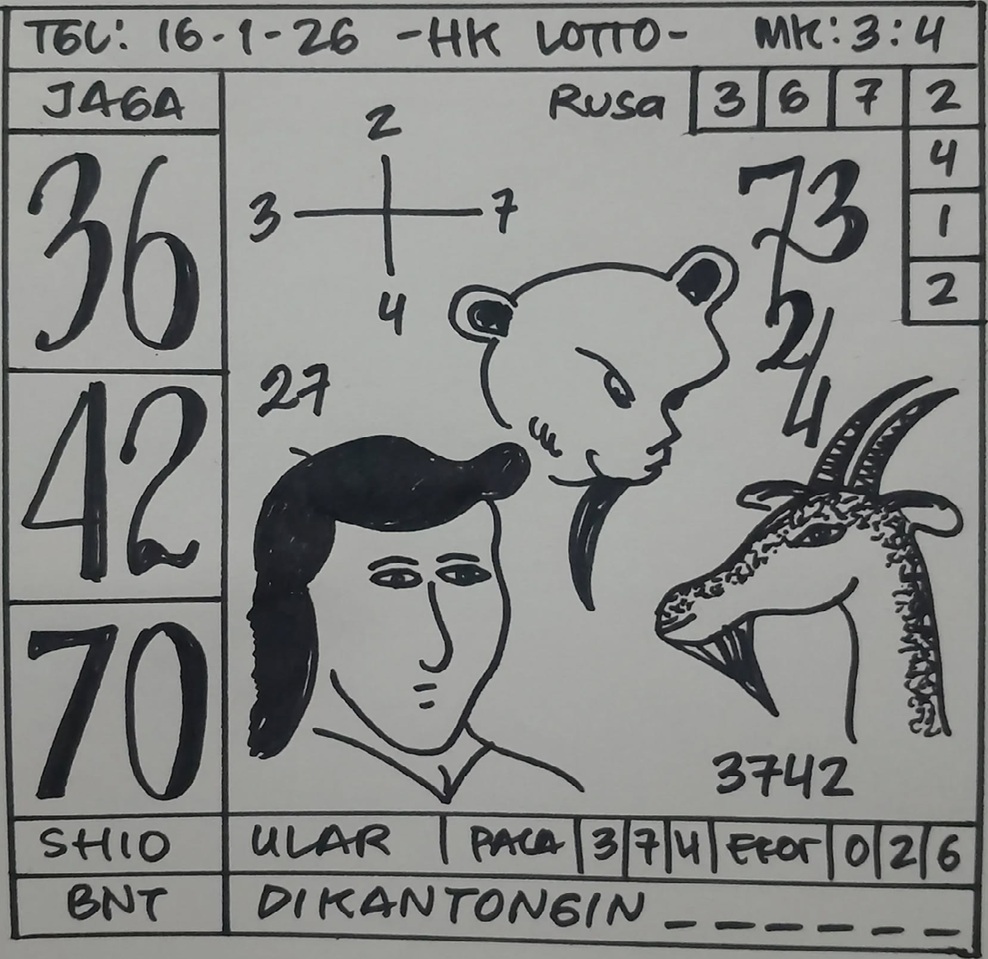 TGL: 16-1-26 -HK LOTTO- MK: 3:4
JAGA
36
42
70
Rusa 3 6 7 2
4
1
2
2
3 7
4
73
24
27
3742
SHIO ULAR PALA 3 7 4 EKOR 0 2 6
BNT DIKANTONGIN _ _ _ _ _ _